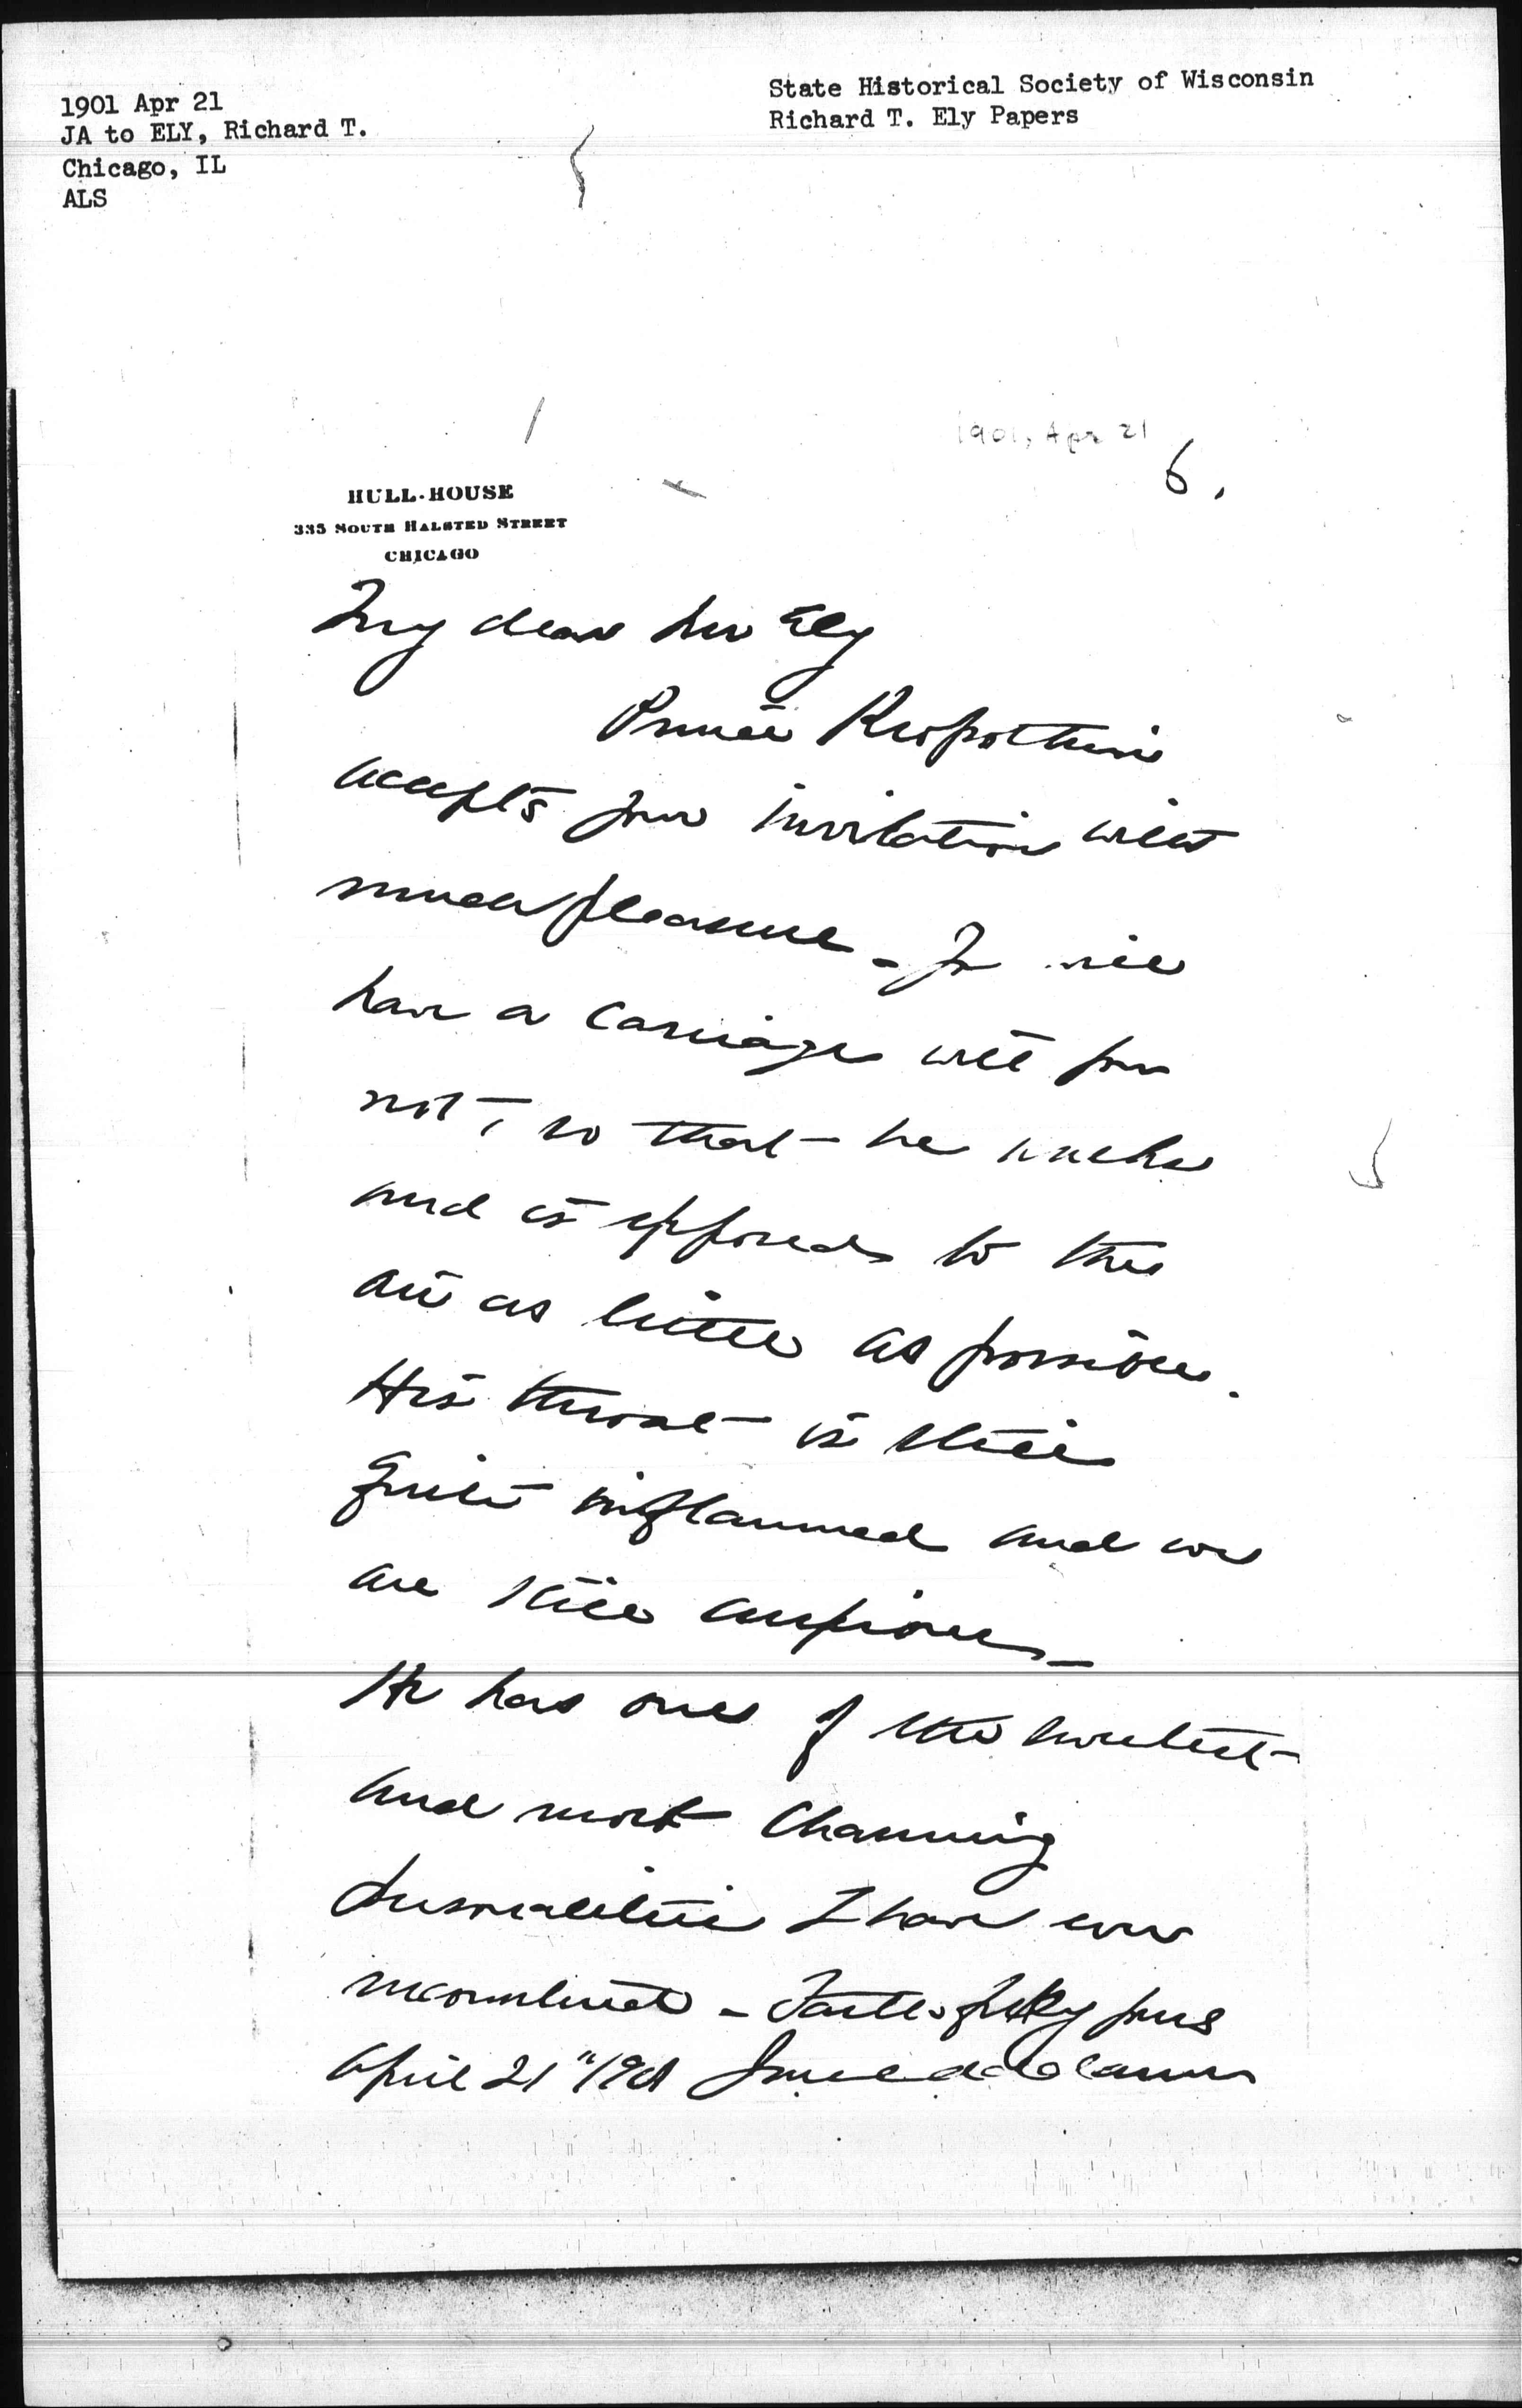 1901 Apr 21
JA to ELY, Richard T.
Chicago, IL
ALS
State Historical Society of Wisconsin
Richard T. Ely Papers
1901, Apr 21
6.
HULL-HOUSE
335 SOUTH HALSTED STREET
CHICAGO
My dear Mr Ely
Prince Kropotkin
accepts your invitation with
much pleasure - You will
have a carriage will you
not, so that he walks
and is exposed to the
air as little as possible.
His throat is still
quite inflammed and we
are still anxious -
He has one of the sweetest
and most charming
personalities I have ever
encountered - Faithfully yours
April 21" 1901 Jane Addams